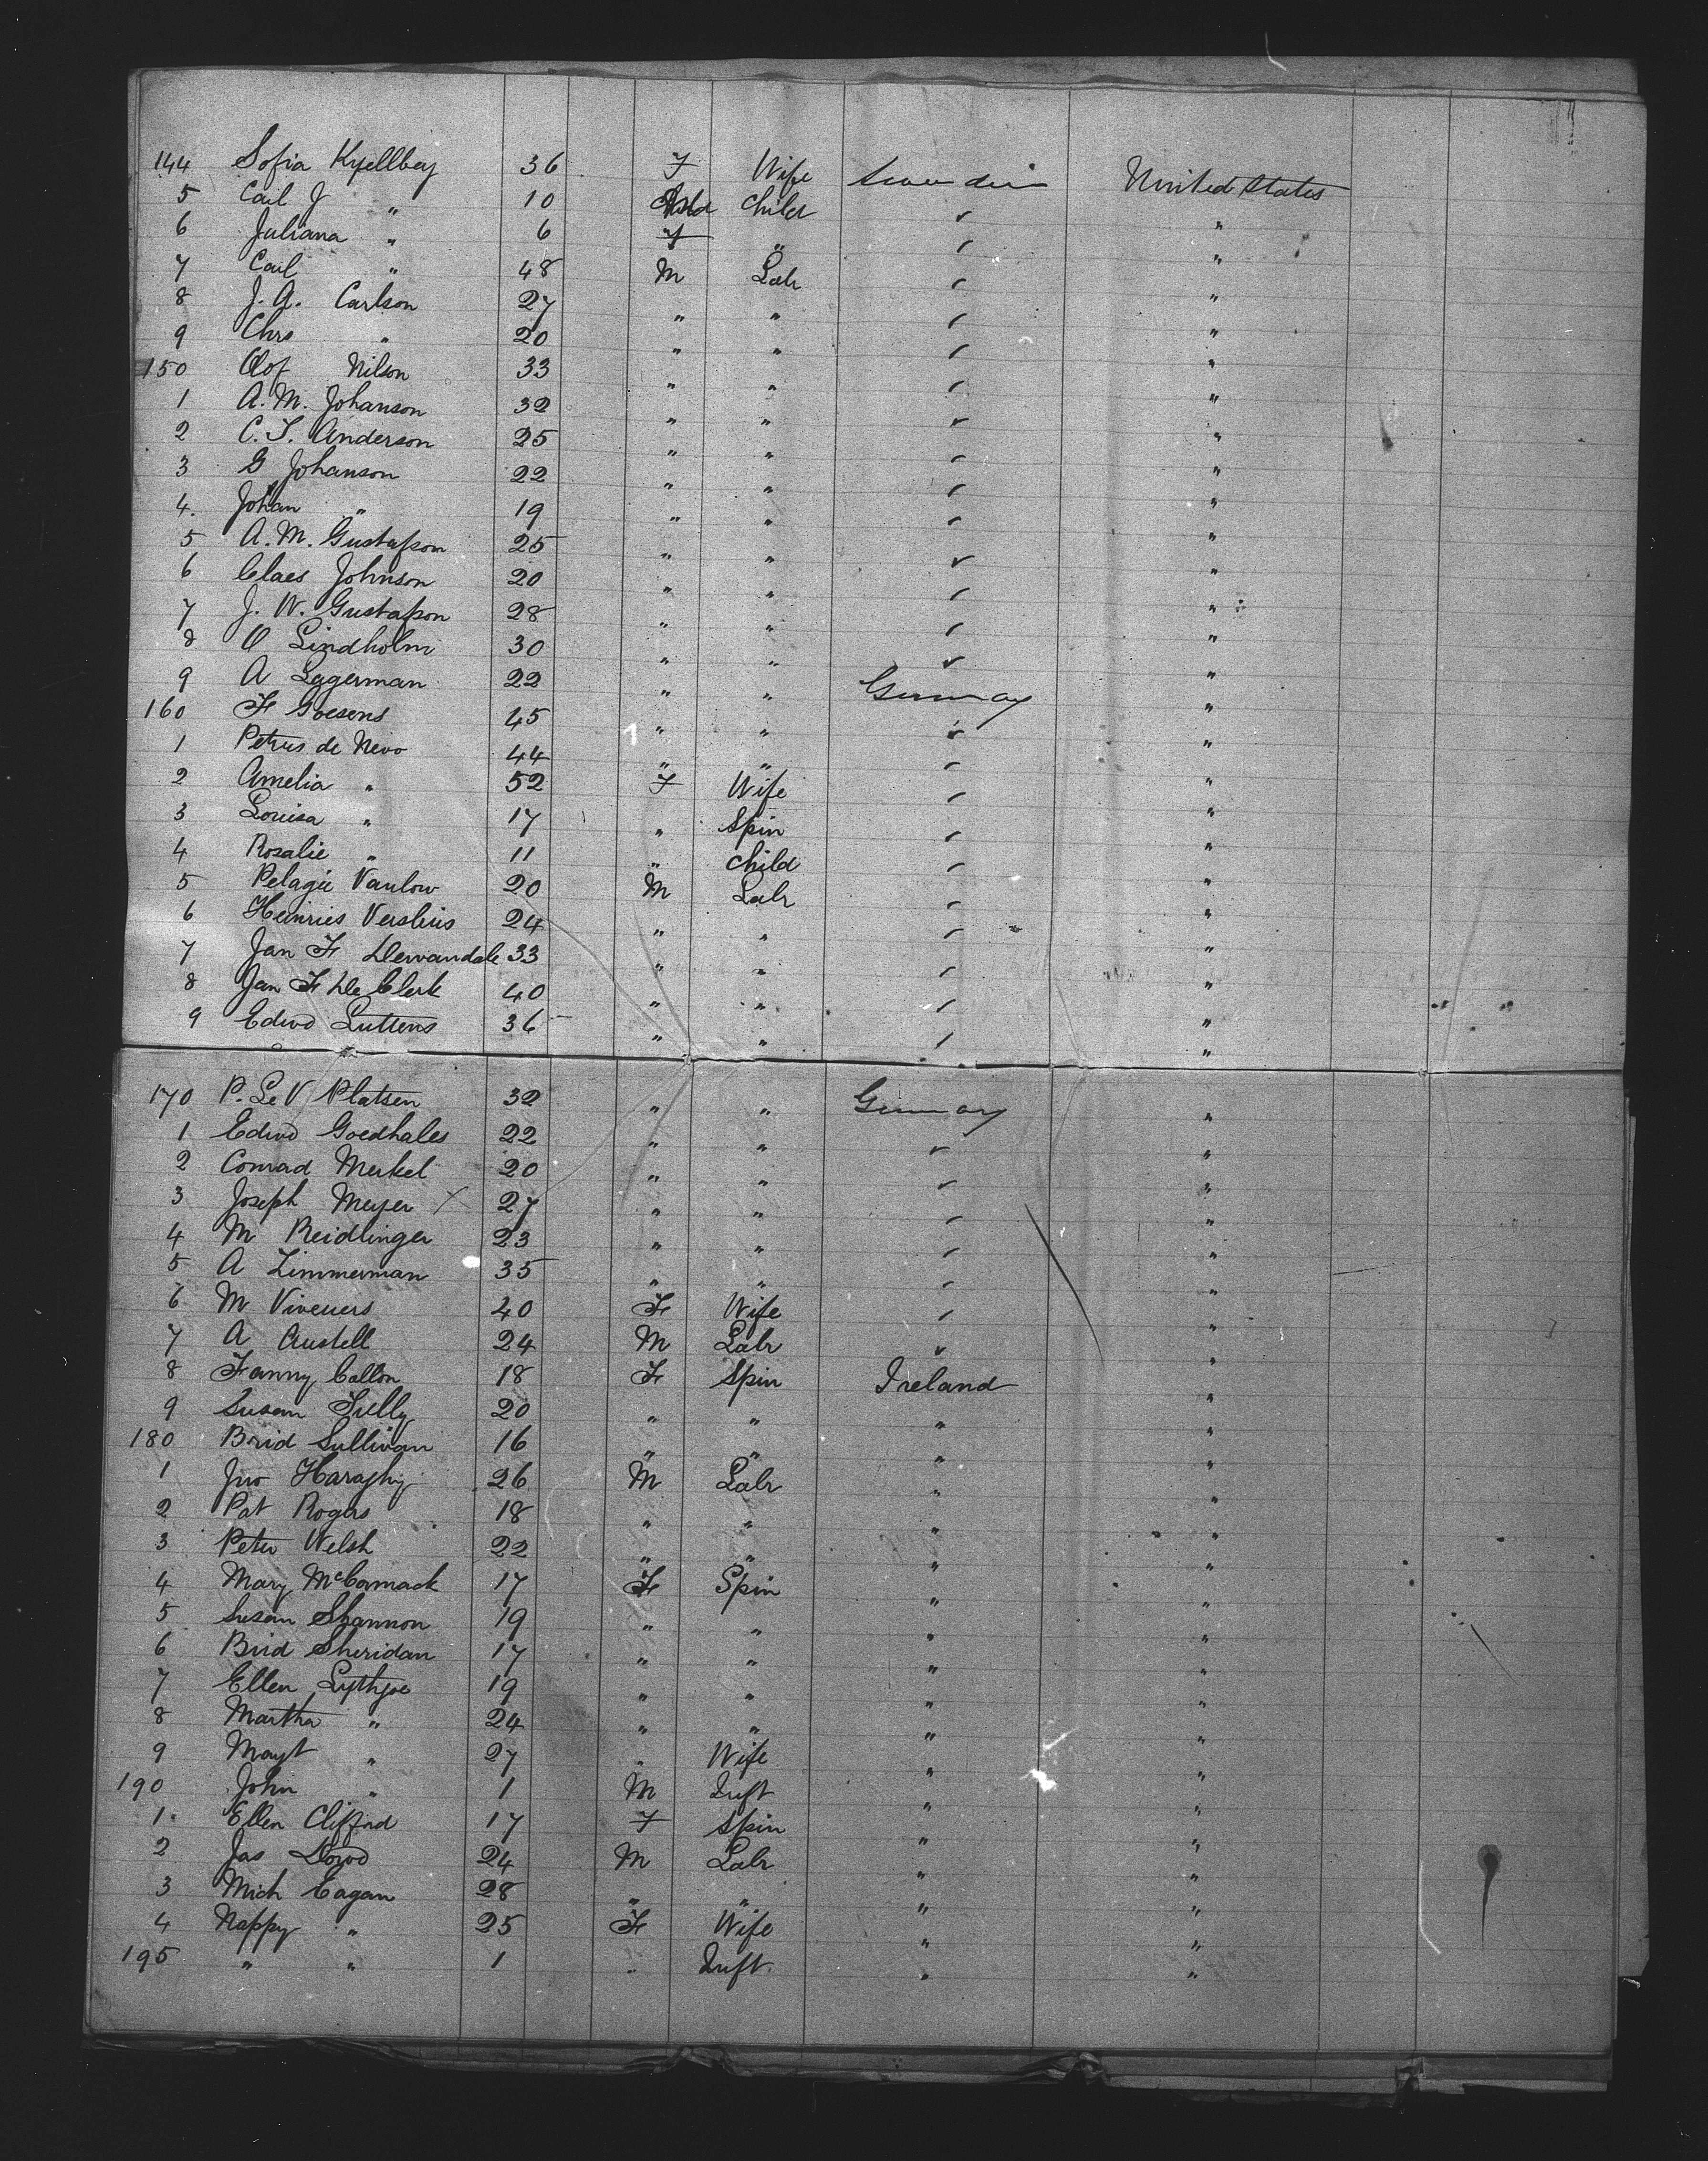 144 Sofia Kyellbey 36 F Wife Sweden United States
5 Carl J " 10 Child ✓ "
6 Juliana " 6 F " ✓ "
7 Carl " 48 M Labr ✓ "
8 J. A. Carlson 27 " " ✓ "
9 Chrs " 20 " " ✓ "
150 Olof Nilson 33 " " ✓ "
1 A. M. Johanson 32 " " ✓ "
2 C. J. Anderson 25 " " ✓ "
3 G Johanson 22 " " ✓ "
4. Johan " 19 " " ✓ "
5 A. M. Gustafson 25 " " ✓ "
6 Claes Johnson 20 " " ✓ "
7 J. W. Gustafson 28 " " ✓ "
8 O Lindholm 30 " " ✓ "
9 A Eggerman 22 " " Germany "
160 F Goesens 45 " " ✓ "
1 Petrus de Nevo 44 " " ✓ "
2 Amelia " 52 F Wife ✓ "
3 Louisa " 17 " Spin ✓ "
4 Rosalie " 11 " Child ✓ "
5 Pelagie Vanlow 20 M Labr ✓ "
6 Heinries Verslius 24 " " ✓ "
7 Jan F Dewandale 33 " " ✓ "
8 Jan F De Clerk 40 " " ✓ "
9 Edwd Luttens 36 " " ✓ "
170 P. Le V Platsen 32 " " Germany "
1 Edwd Goedhales 22 " " ✓ "
2 Conrad Merkel 20 " " ✓ "
3 Joseph Meyer X 27 " " ✓ "
4 M Reidlinger 23 " " ✓ "
5 A Zimmerman 35 " " ✓ "
6 M Viveuers 40 F Wife ✓ "
7 A Austell 24 M Labr ✓ "
8 Fanny Callon 18 F Spin Ireland "
9 Susan Tully 20 " " " "
180 Brid Sullivan 16 " " " "
1 Jno Haraghy 26 M Labr " "
2 Pat Rogers 18 " " " "
3 Peter Welsh 22 " " " "
4 Mary McCormack 17 F Spin " "
5 Susan Shannon 19 " " " "
6 Brid Sheridan 17 " " " "
7 Ellen Lythgoe 19 " " " "
8 Martha " 24 " " " "
9 Magt " 27 " Wife " "
190 John " 1 M Inft " "
1. Ellen Clifford 17 F Spin " "
2 Jas Dowd 24 M Labr " "
3 Mich Eagan 28 " " " "
4 Nappy " 25 F Wife " "
195 " " 1 " Inft. " "